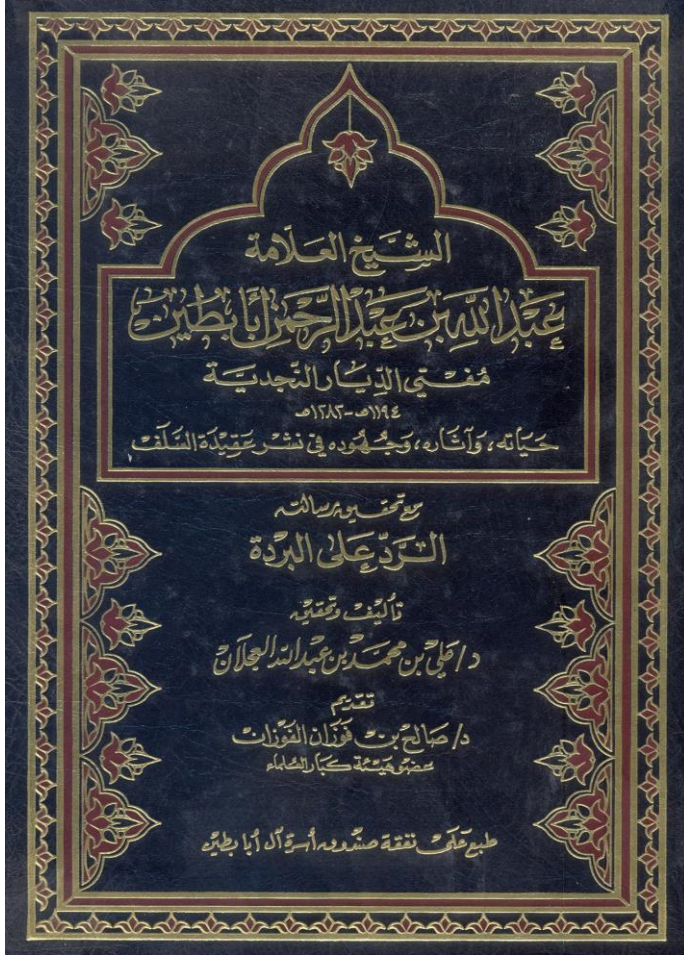 الشيخ العلامة
عبد الله بن عبد الرحمن أبا بطين
مفتي الديار النجدية
١١٩٤هـ - ١٢٨٢هـ
حياته، وآثاره، وجهوده في نشر عقيدة السلف
مع تحقيق رسالته
الرد على البردة
تأليف وتحقيق
د/ علي بن محمد بن عبد الله العجلان
تقديم
د/ صالح بن فوزان الفوزان
عضو هيئة كبار العلماء
طبع على نفقة صندوق أسرة آل أبا بطين